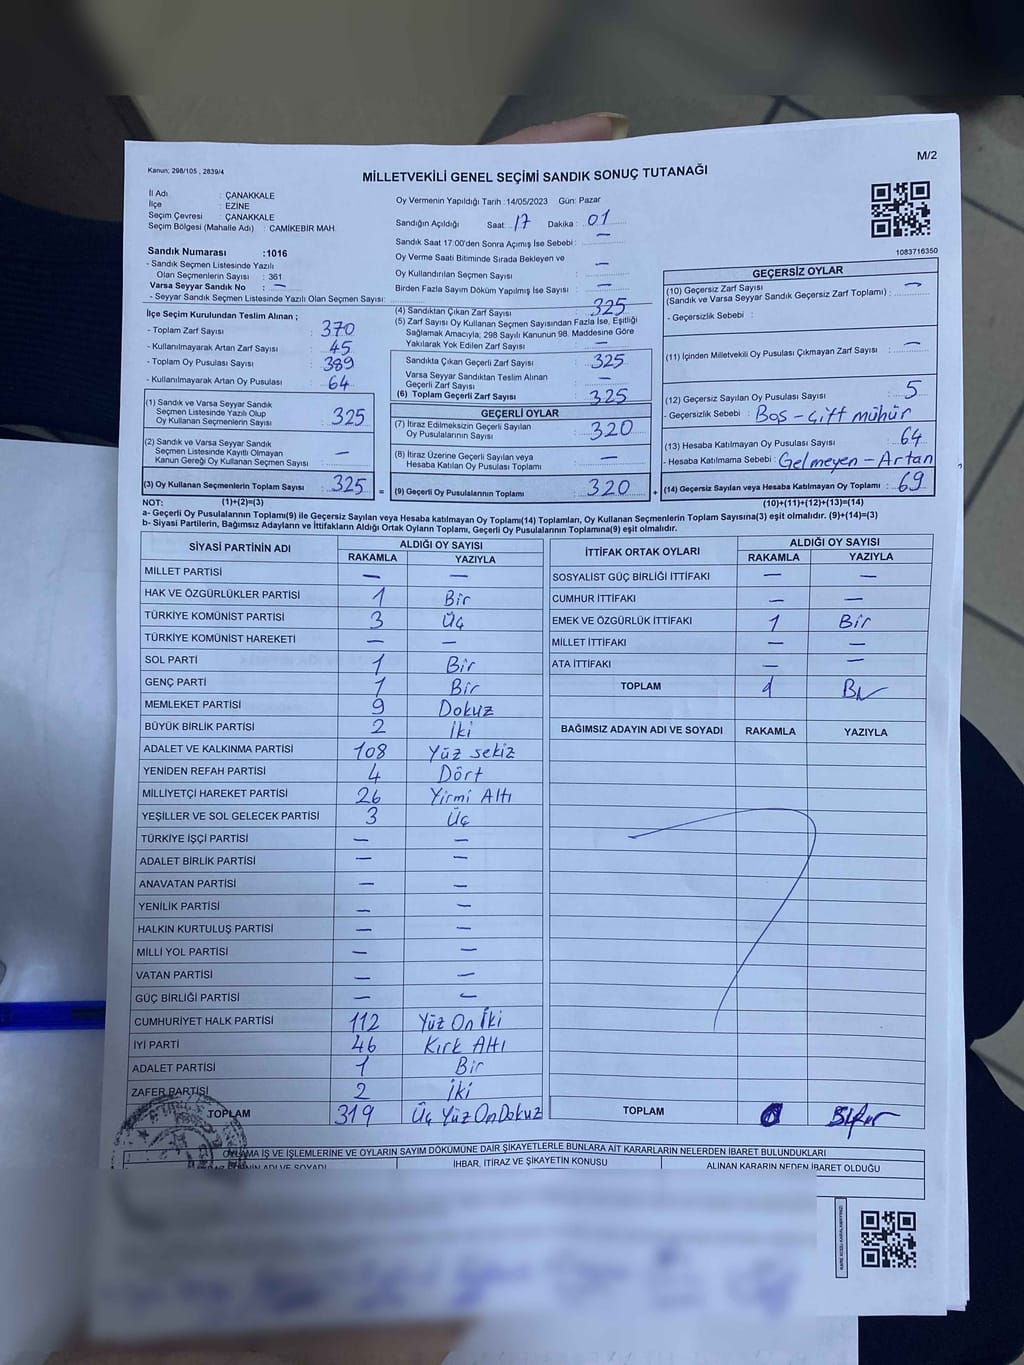 Kanun; 298/105 , 2839/4
M/2
MİLLETVEKİLİ GENEL SEÇİMİ SANDIK SONUÇ TUTANAĞI
İl Adı : ÇANAKKALE
İlçe : EZİNE
Seçim Çevresi : ÇANAKKALE
Seçim Bölgesi (Mahalle Adı) : CAMİKEBİR MAH.
Sandık Numarası :1016
- Sandık Seçmen Listesinde Yazılı
Olan Seçmenlerin Sayısı : 361
Varsa Seyyar Sandık No : —
- Seyyar Sandık Seçmen Listesinde Yazılı Olan Seçmen Sayısı:
Oy Vermenin Yapıldığı Tarih :14/05/2023 Gün: Pazar
Sandığın Açıldığı Saat 17 Dakika : 01
Sandık Saat 17:00'den Sonra Açımış İse Sebebi : —
Oy Verme Saati Bitiminde Sırada Bekleyen ve
Oy Kullandırılan Seçmen Sayısı : —
Birden Fazla Sayım Döküm Yapılmış İse Sayısı : —
1083716350
İlçe Seçim Kurulundan Teslim Alınan ;
- Toplam Zarf Sayısı : 370
- Kullanılmayarak Artan Zarf Sayısı : 45
- Toplam Oy Pusulası Sayısı : 389
- Kullanılmayarak Artan Oy Pusulası : 64
(1) Sandık ve Varsa Seyyar Sandık
Seçmen Listesinde Yazılı Olup
Oy Kullanan Seçmenlerin Sayısı : 325
(2) Sandık ve Varsa Seyyar Sandık
Seçmen Listesinde Kayıtlı Olmayan
Kanun Gereği Oy Kullanan Seçmen Sayısı : —
(3) Oy Kullanan Seçmenlerin Toplam Sayısı : 325 =
(4) Sandıktan Çıkan Zarf Sayısı : 325
(5) Zarf Sayısı Oy Kullanan Seçmen Sayısından Fazla İse, Eşitliği
Sağlamak Amacıyla; 298 Sayılı Kanunun 98. Maddesine Göre
Yakılarak Yok Edilen Zarf Sayısı : —
Sandıkta Çıkan Geçerli Zarf Sayısı : 325
Varsa Seyyar Sandıktan Teslim Alınan
Geçerli Zarf Sayısı : —
(6) Toplam Geçerli Zarf Sayısı : 325
GEÇERLİ OYLAR
(7) İtiraz Edilmeksizin Geçerli Sayılan
Oy Pusulalarının Sayısı : 320
(8) İtiraz Üzerine Geçerli Sayılan veya
Hesaba Katılan Oy Pusulası Toplamı : —
(9) Geçerli Oy Pusulalarının Toplamı : 320 +
GEÇERSİZ OYLAR
(10) Geçersiz Zarf Sayısı
(Sandık ve Varsa Seyyar Sandık Geçersiz Zarf Toplamı) : —
- Geçersizlik Sebebi :
(11) İçinden Milletvekili Oy Pusulası Çıkmayan Zarf Sayısı : —
(12) Geçersiz Sayılan Oy Pusulası Sayısı : 5
- Geçersizlik Sebebi : Boş - Çift mühür
(13) Hesaba Katılmayan Oy Pusulası Sayısı : 64
- Hesaba Katılmama Sebebi : Gelmeyen - Artan
(14) Geçersiz Sayılan veya Hesaba Katılmayan Oy Toplamı : 69
NOT: (1)+(2)=(3) (10)+(11)+(12)+(13)=(14)
a- Geçerli Oy Pusulalarının Toplamı(9) ile Geçersiz Sayılan veya Hesaba katılmayan Oy Toplamı(14) Toplamları, Oy Kullanan Seçmenlerin Toplam Sayısına(3) eşit olmalıdır. (9)+(14)=(3)
b- Siyasi Partilerin, Bağımsız Adayların ve İttifakların Aldığı Ortak Oyların Toplamı, Geçerli Oy Pusulalarının Toplamına(9) eşit olmalıdır.
SİYASİ PARTİNİN ADI ALDIĞI OY SAYISI
RAKAMLA YAZIYLA
MİLLET PARTİSİ — —
HAK VE ÖZGÜRLÜKLER PARTİSİ 1 Bir
TÜRKİYE KOMÜNİST PARTİSİ 3 Üç
TÜRKİYE KOMÜNİST HAREKETİ — —
SOL PARTİ 1 Bir
GENÇ PARTİ 1 Bir
MEMLEKET PARTİSİ 9 Dokuz
BÜYÜK BİRLİK PARTİSİ 2 İki
ADALET VE KALKINMA PARTİSİ 108 Yüz sekiz
YENİDEN REFAH PARTİSİ 4 Dört
MİLLİYETÇİ HAREKET PARTİSİ 26 Yirmi Altı
YEŞİLLER VE SOL GELECEK PARTİSİ 3 Üç
TÜRKİYE İŞÇİ PARTİSİ — —
ADALET BİRLİK PARTİSİ — —
ANAVATAN PARTİSİ — —
YENİLİK PARTİSİ — —
HALKIN KURTULUŞ PARTİSİ — —
MİLLİ YOL PARTİSİ — —
VATAN PARTİSİ — —
GÜÇ BİRLİĞİ PARTİSİ — —
CUMHURİYET HALK PARTİSİ 112 Yüz On İki
İYİ PARTİ 46 Kırk Altı
ADALET PARTİSİ 1 Bir
ZAFER PARTİSİ 2 İki
TOPLAM 319 Üç Yüz On Dokuz
İTTİFAK ORTAK OYLARI ALDIĞI OY SAYISI
RAKAMLA YAZIYLA
SOSYALİST GÜÇ BİRLİĞİ İTTİFAKI — —
CUMHUR İTTİFAKI — —
EMEK VE ÖZGÜRLÜK İTTİFAKI 1 Bir
MİLLET İTTİFAKI — —
ATA İTTİFAKI — —
TOPLAM 1 Bir
BAĞIMSIZ ADAYIN ADI VE SOYADI RAKAMLA YAZIYLA
TOPLAM 0 Sıfır
OYLAMA İŞ VE İŞLEMLERİNE VE OYLARIN SAYIM DÖKÜMÜNE DAİR ŞİKAYETLERLE BUNLARA AİT KARARLARIN NELERDEN İBARET BULUNDUKLARI
ADI VE SOYADI İHBAR, İTİRAZ VE ŞİKAYETİN KONUSU ALINAN KARARIN NEDEN İBARET OLDUĞU